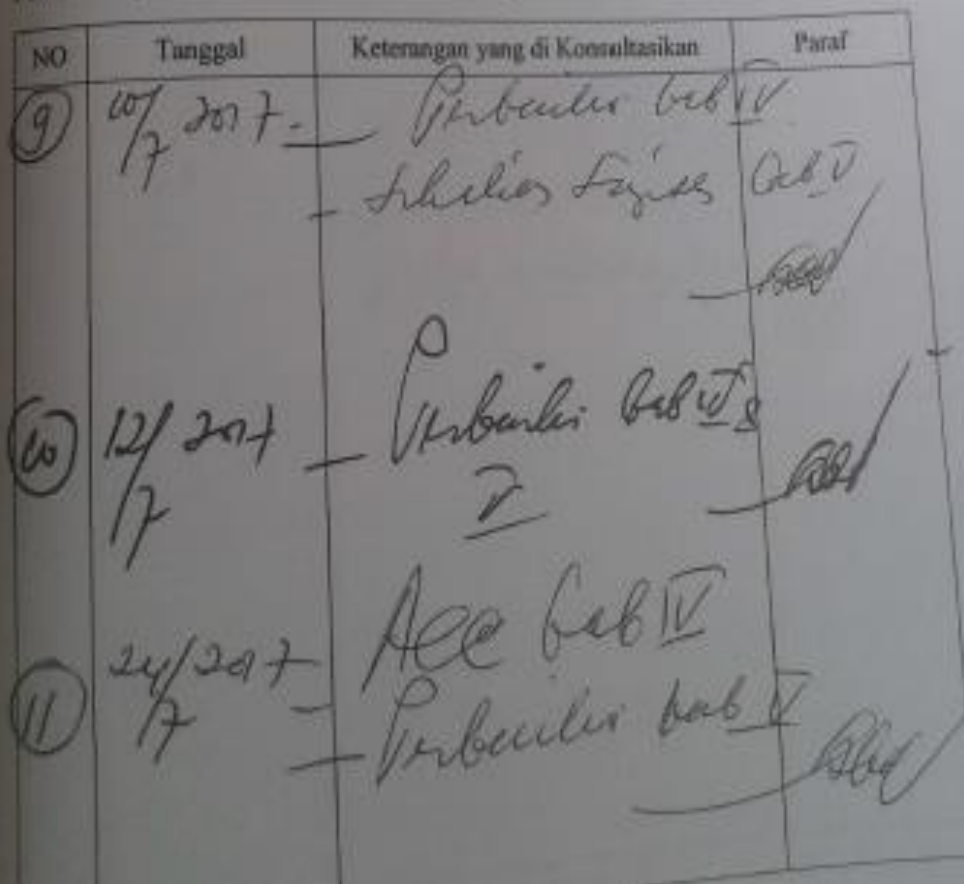 NO Tanggal Keterangan yang di Konsultasikan Paraf
9 10/7 2017 - Perbaiki bab IV
- bab V
10 12/7 2017 - Perbaiki bab IV &
V
11 24/7 2017 - Acc bab IV
- Perbaiki bab V